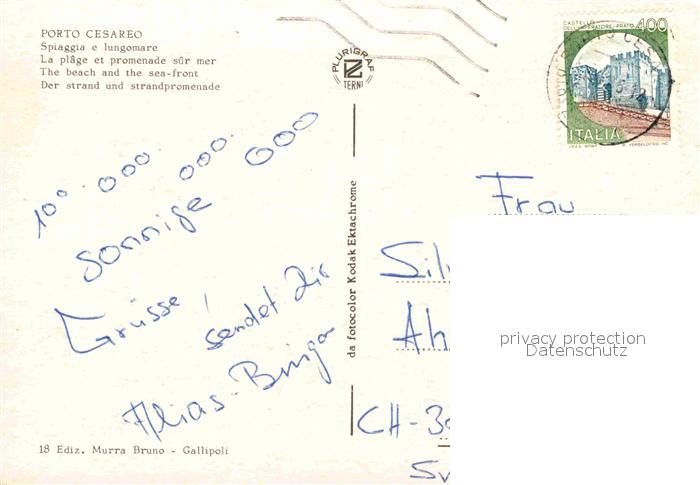 PORTO CESAREO
Spiaggia e lungomare
La plâge et promenade sûr mer
The beach and the sea-front
Der strand und strandpromenade
PLURIGRAF
TERNI
CASTELLO
DELL'IMPERATORE-PRATO 400
ITALIA
10⁰ 000 000 000
sonnige
Grüsse,
sendet Dir
Alias-Bingo
da fotocolor Kodak Ektachrome
Frau
Sil
Ah
CH-30
Sv
privacy protection
Datenschutz
18 Ediz. Murra Bruno - Gallipoli